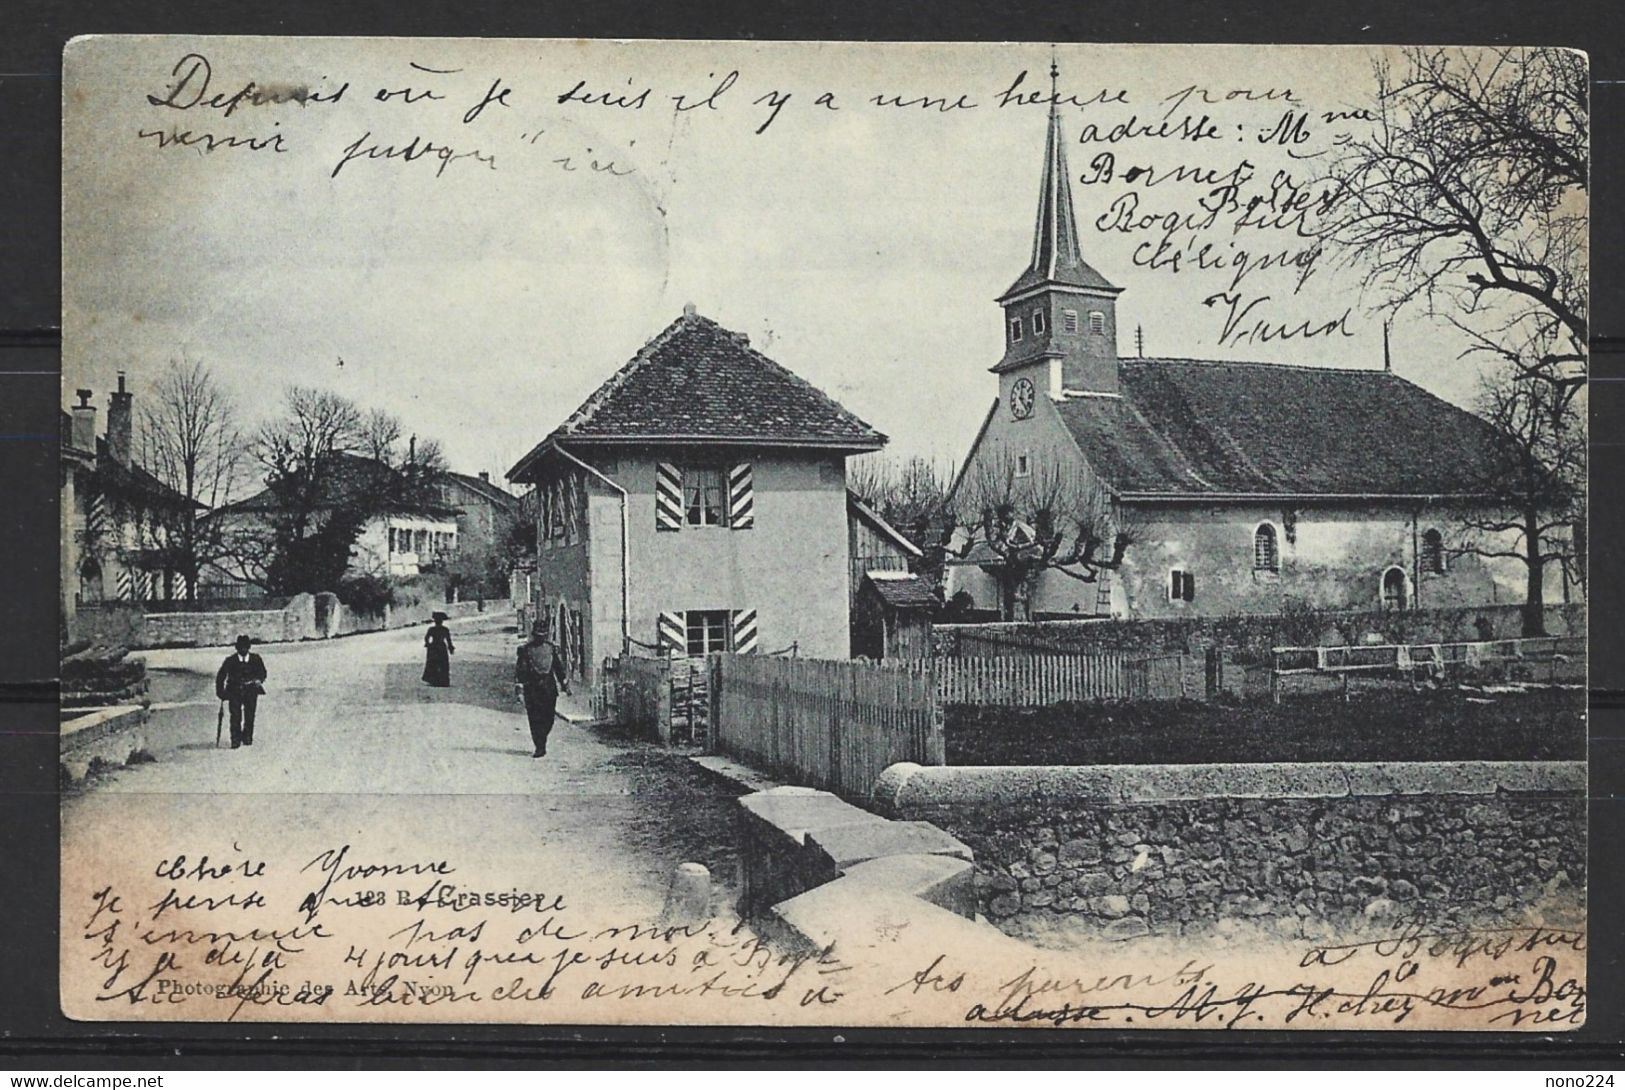 Depuis où je suis il y a une heure pour
venir jusqu'ici
adresse : Mme
Bornet à
Bogis sur
Clérigny
Vaud
Chère Yvonne
Je pense que tu ne
123 B. - Crassier
t'ennuie pas de moi.
y a déjà 4 jours que je suis à Bogis
Tu feras bien des amitiés à tes parents
Photographie des Arts, Nyon
à Bogis sur
adresse : M. Y. H. chez Mme Bor
net
nono224